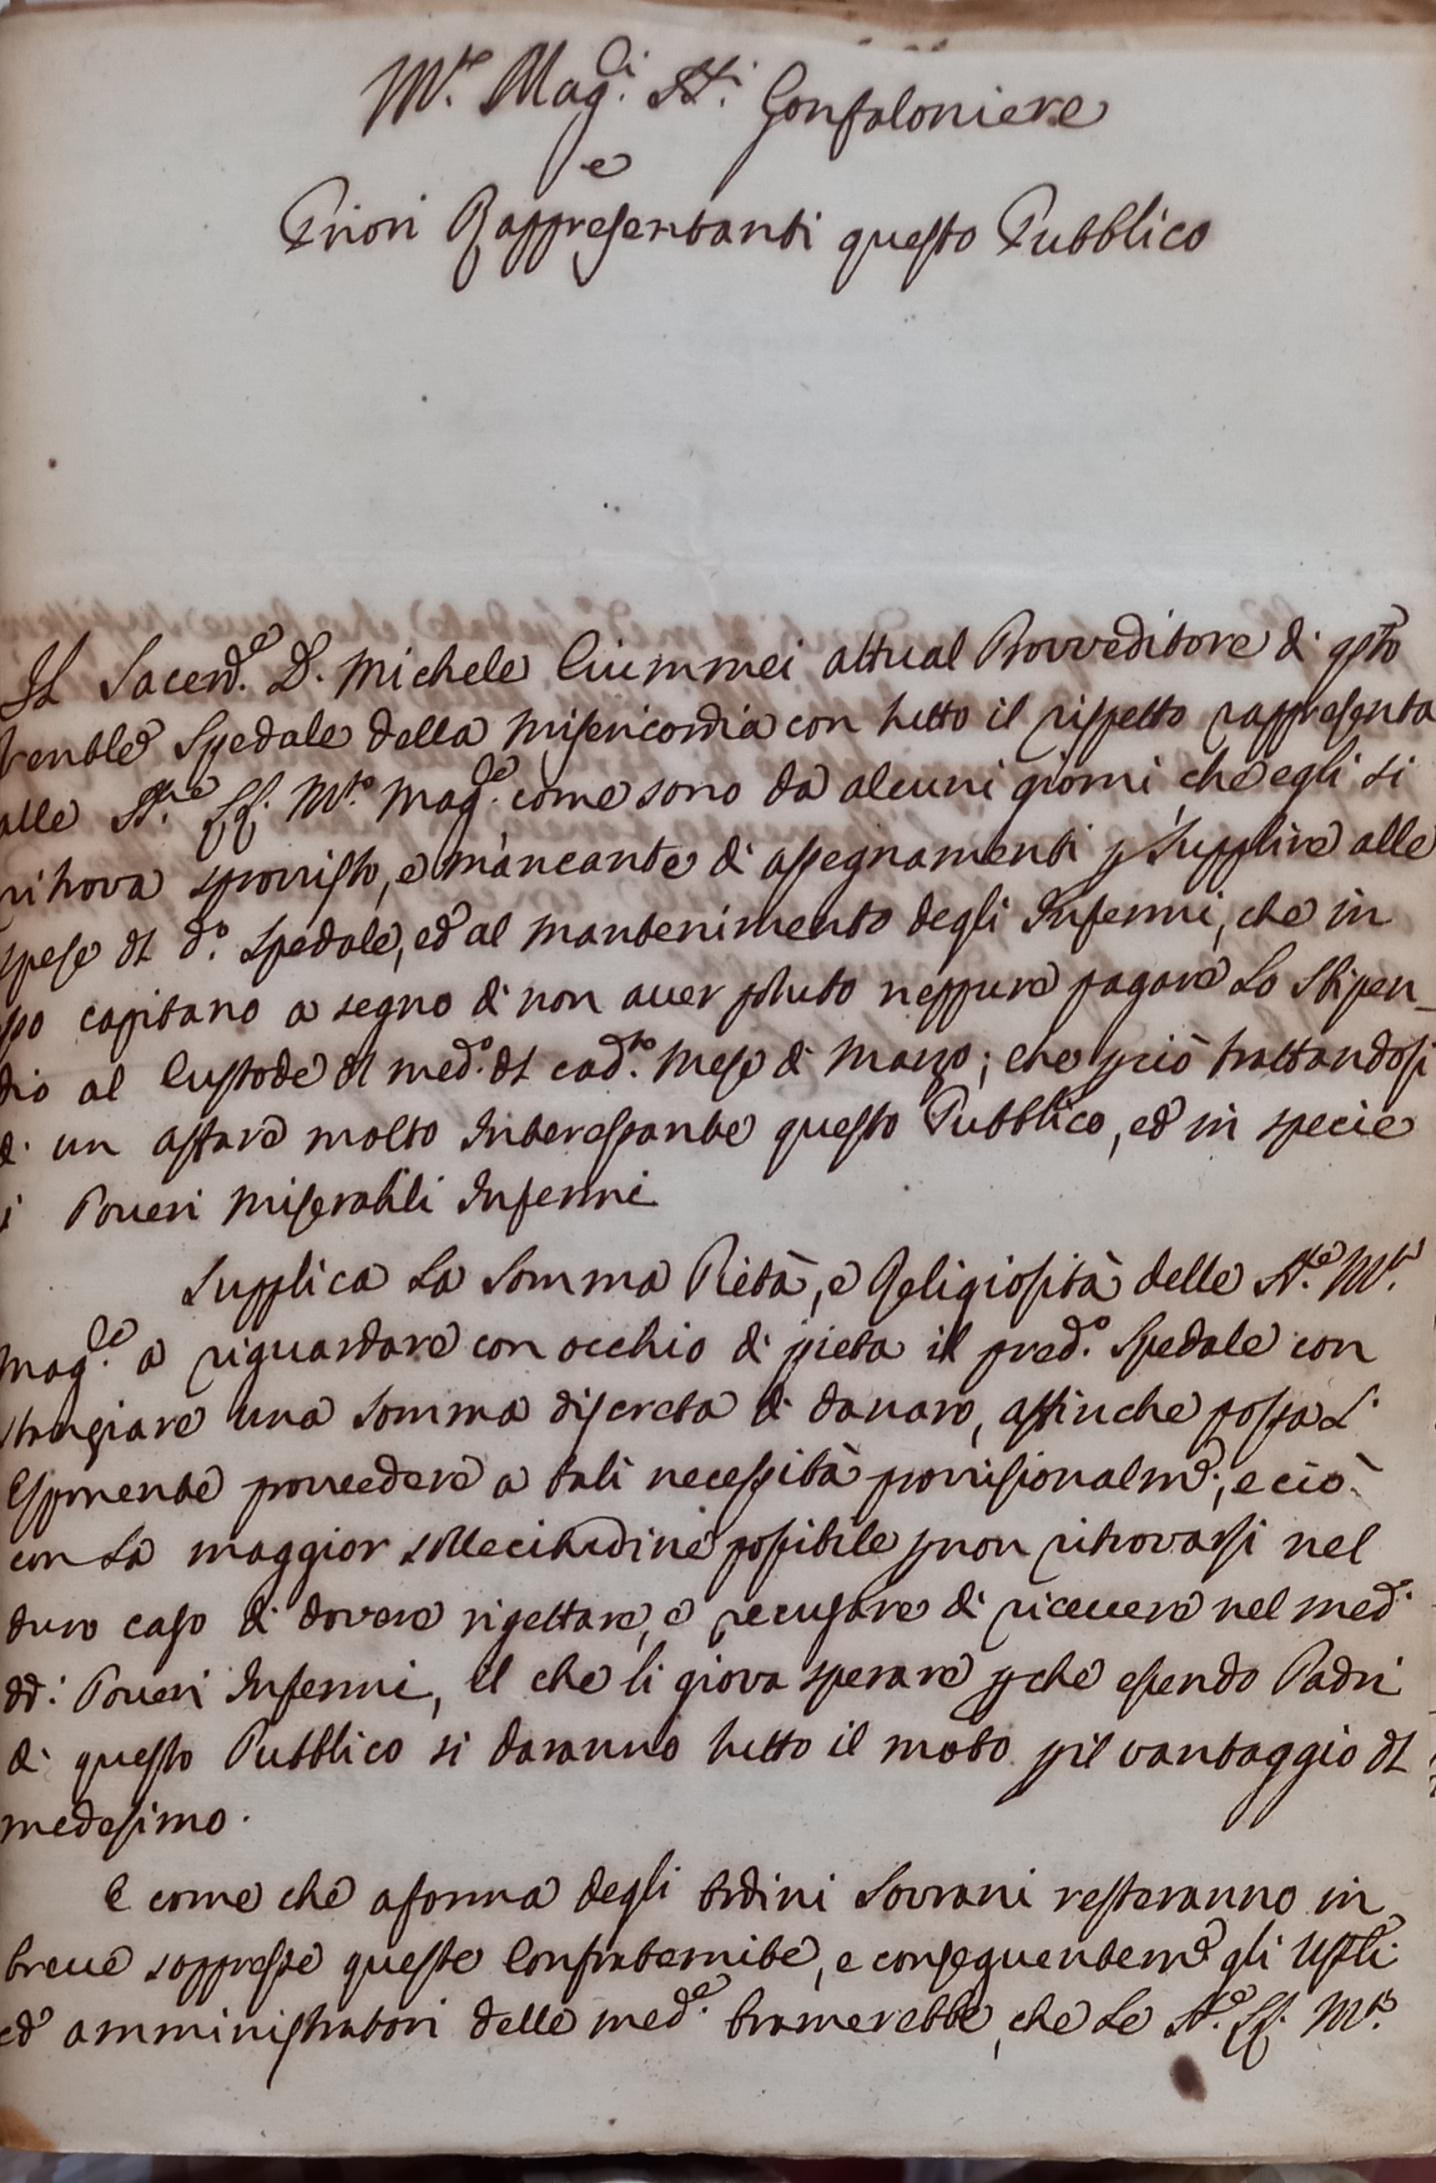 M.to Mag.ci SS.ri Gonfaloniere
e
Priori Rappresentanti questo Pubblico
Il Sacerd.e D. Michele Ciummei attual Provveditore di qsto
Venble Spedale della Misericordia con tutto il rispetto rappresenta
alle SS.rie LL. M.to Mag.ce come sono da alcuni giorni, che egli si
ritrova sprovvisto, e mancante di assegnamenti p supplire alle
spese dl d.o Spedale, ed al mantenimento degli Infermi, che in
sso capitano a segno di non aver potuto neppure pagare lo stipen_
dio al Custode dl med.o dl cad.to Mese di Marzo; che pciò trattandosi
di un affare molto Interessante questo Pubblico, ed in specie
i Poveri Miserabili Infermi
Supplica la somma Pietà, e Religiosità delle SS.rie M.to
Mag.ce a riguardare con occhio di pieta il pred.o Spedale con
stanziare una somma discreta di danaro, affinche possa l'
Esponente provvedere a tali necessità provvisionalme; e ciò
con la maggior sollecitudine possibile p non ritrovarsi nel
duro caso di dovere rigettare, e recusare di ricevere nel med.o
dd.i Poveri Infermi, il che li giova sperare pche essendo Padri
di questo Pubblico si daranno tutto il moto p il vantaggio dl
medesimo.
E come che a forma degli Ordini Sovrani resteranno in
breve soppresse queste Confraternite, e conseguenteme gli Ufli
ed amministratori delle med.e bramerebbe, che le SS.rie LL. M.to